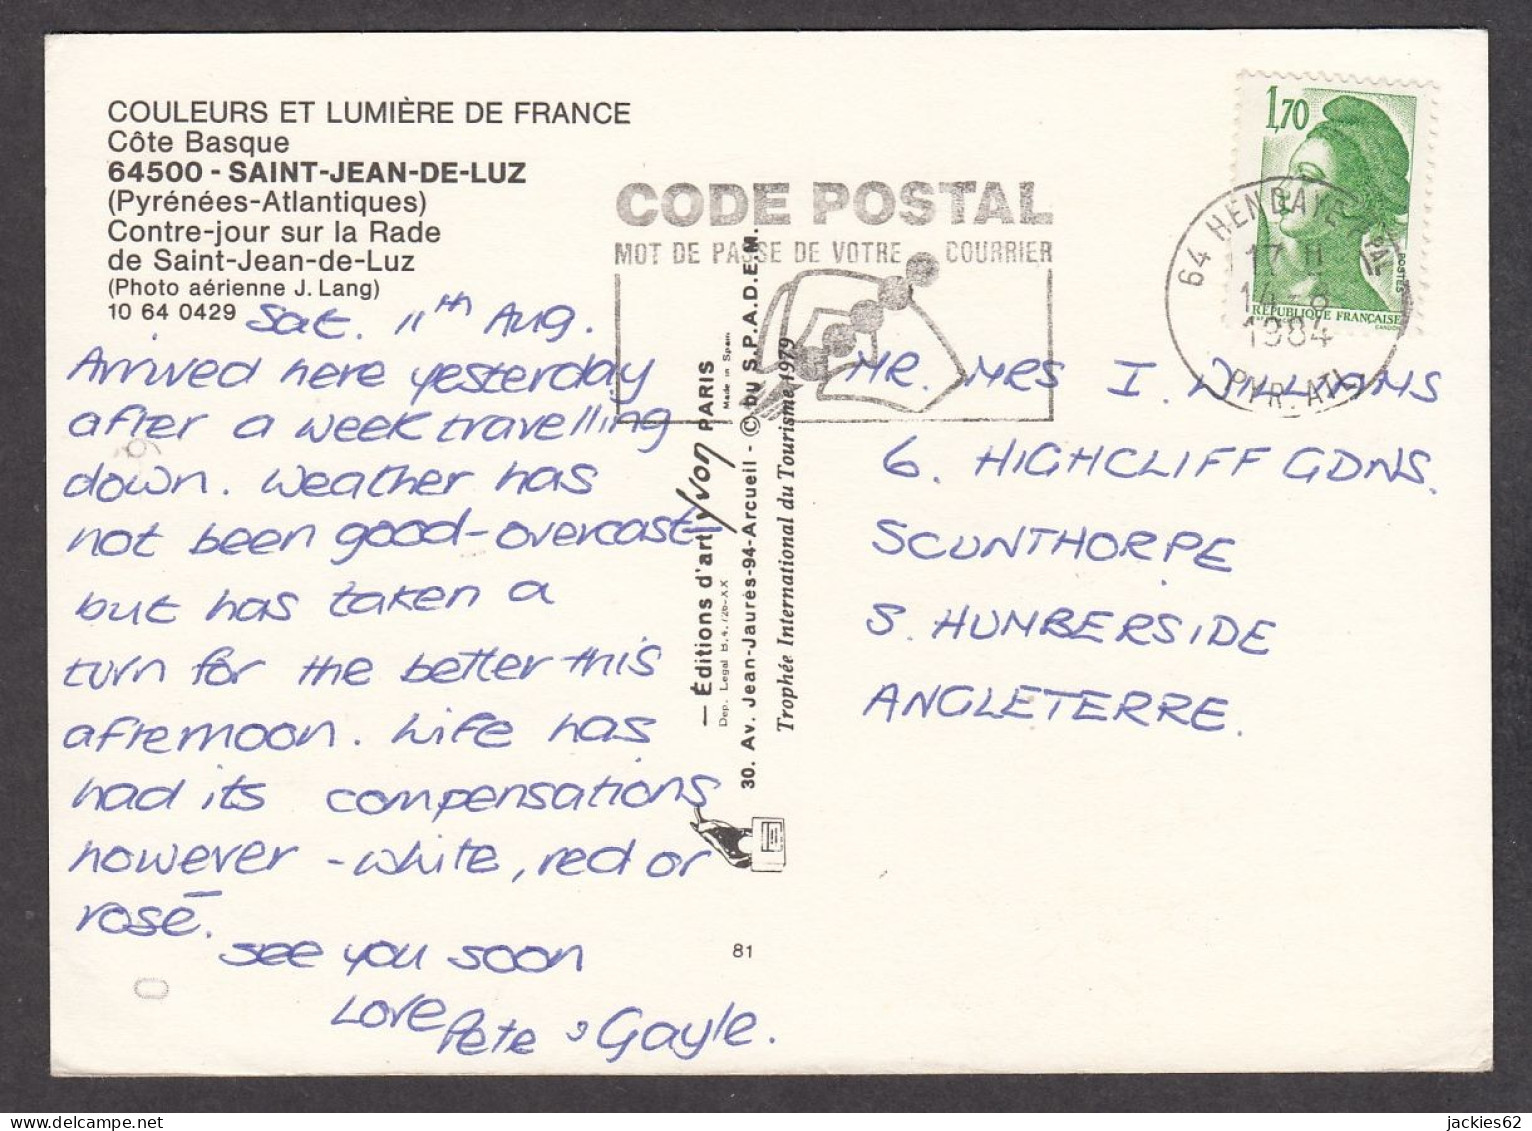 COULEURS ET LUMIÈRE DE FRANCE
Côte Basque
64500 - SAINT-JEAN-DE-LUZ
(Pyrénées-Atlantiques)
Contre-jour sur la Rade
de Saint-Jean-de-Luz
(Photo aérienne J. Lang)
10 64 0429
Sat. 11th Aug.
Arrived here yesterday
after a week travelling
down. Weather has
not been good - overcast -
but has taken a
turn for the better this
afternoon. Life has
had its compensations
however - white, red or
rosé.
See you soon
Love
Pete & Gayle.
CODE POSTAL
MOT DE PASSE DE VOTRE COURRIER
— Éditions d'art Yvon PARIS
Made in Spain
Dep. Legal B.4.726-XX
30. Av. Jean-Jaurès-94-Arcueil - © by S.P.A.D.E.M.
Trophée International du Tourisme 1979
81
1,70
POSTES
RÉPUBLIQUE FRANÇAISE
GANDON
64 HENDAYE PPAL
17 H
14-8
1984
PYR. ATL.
MR. MRS I. WILLIAMS
6. HIGHCLIFF GDNS.
SCUNTHORPE
S. HUMBERSIDE
ANGLETERRE.
0
jackies62